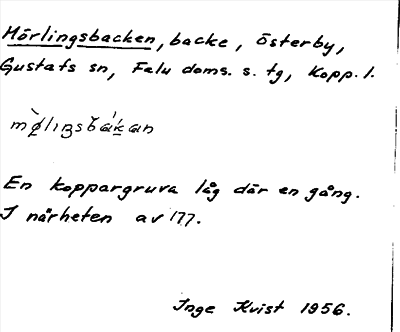 Mörlingsbacken, backe, Österby,
Gustafs sn, Falu doms. s. tg, Kopp. l.
En koppargruva låg där en gång.
I närheten av 177.
Inge Kvist 1956.